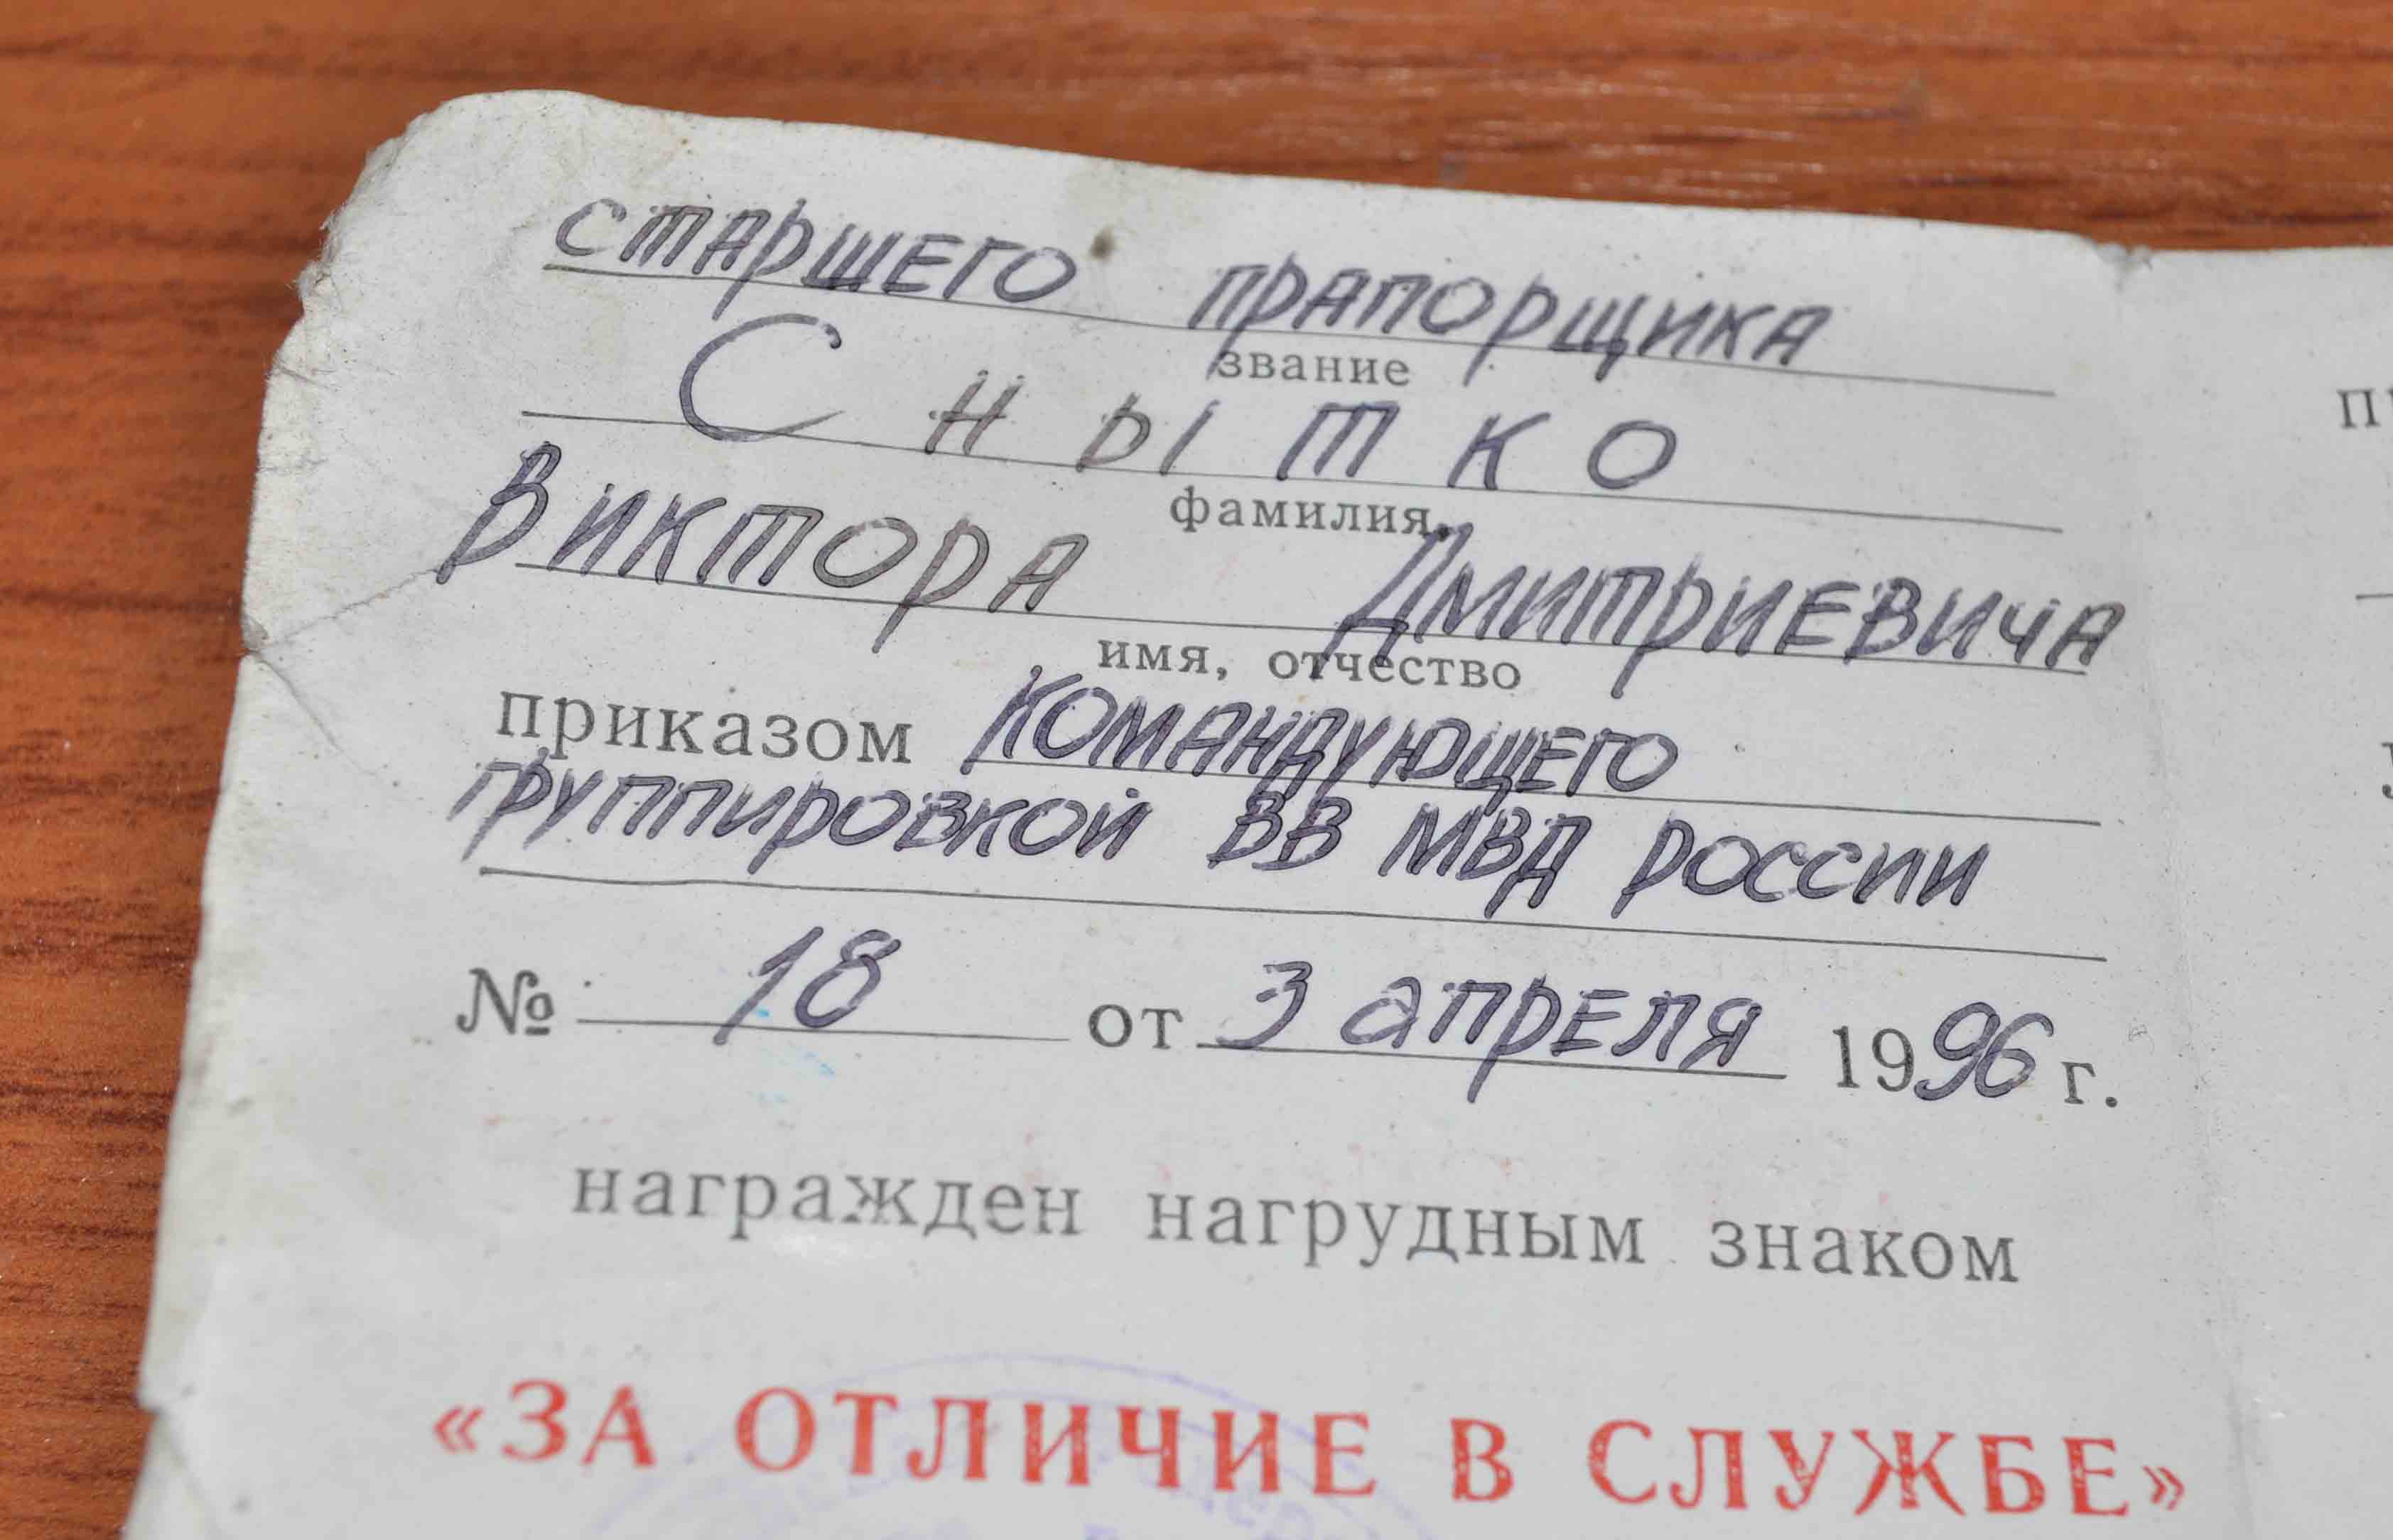 старшего прапорщика
звание
Снытко
фамилия,
Виктора Дмитриевича
имя, отчество
приказом командующего
группировкой ВВ МВД России
№ 18 от 3 апреля 1996 г.
награжден нагрудным знаком
«ЗА ОТЛИЧИЕ В СЛУЖБЕ»